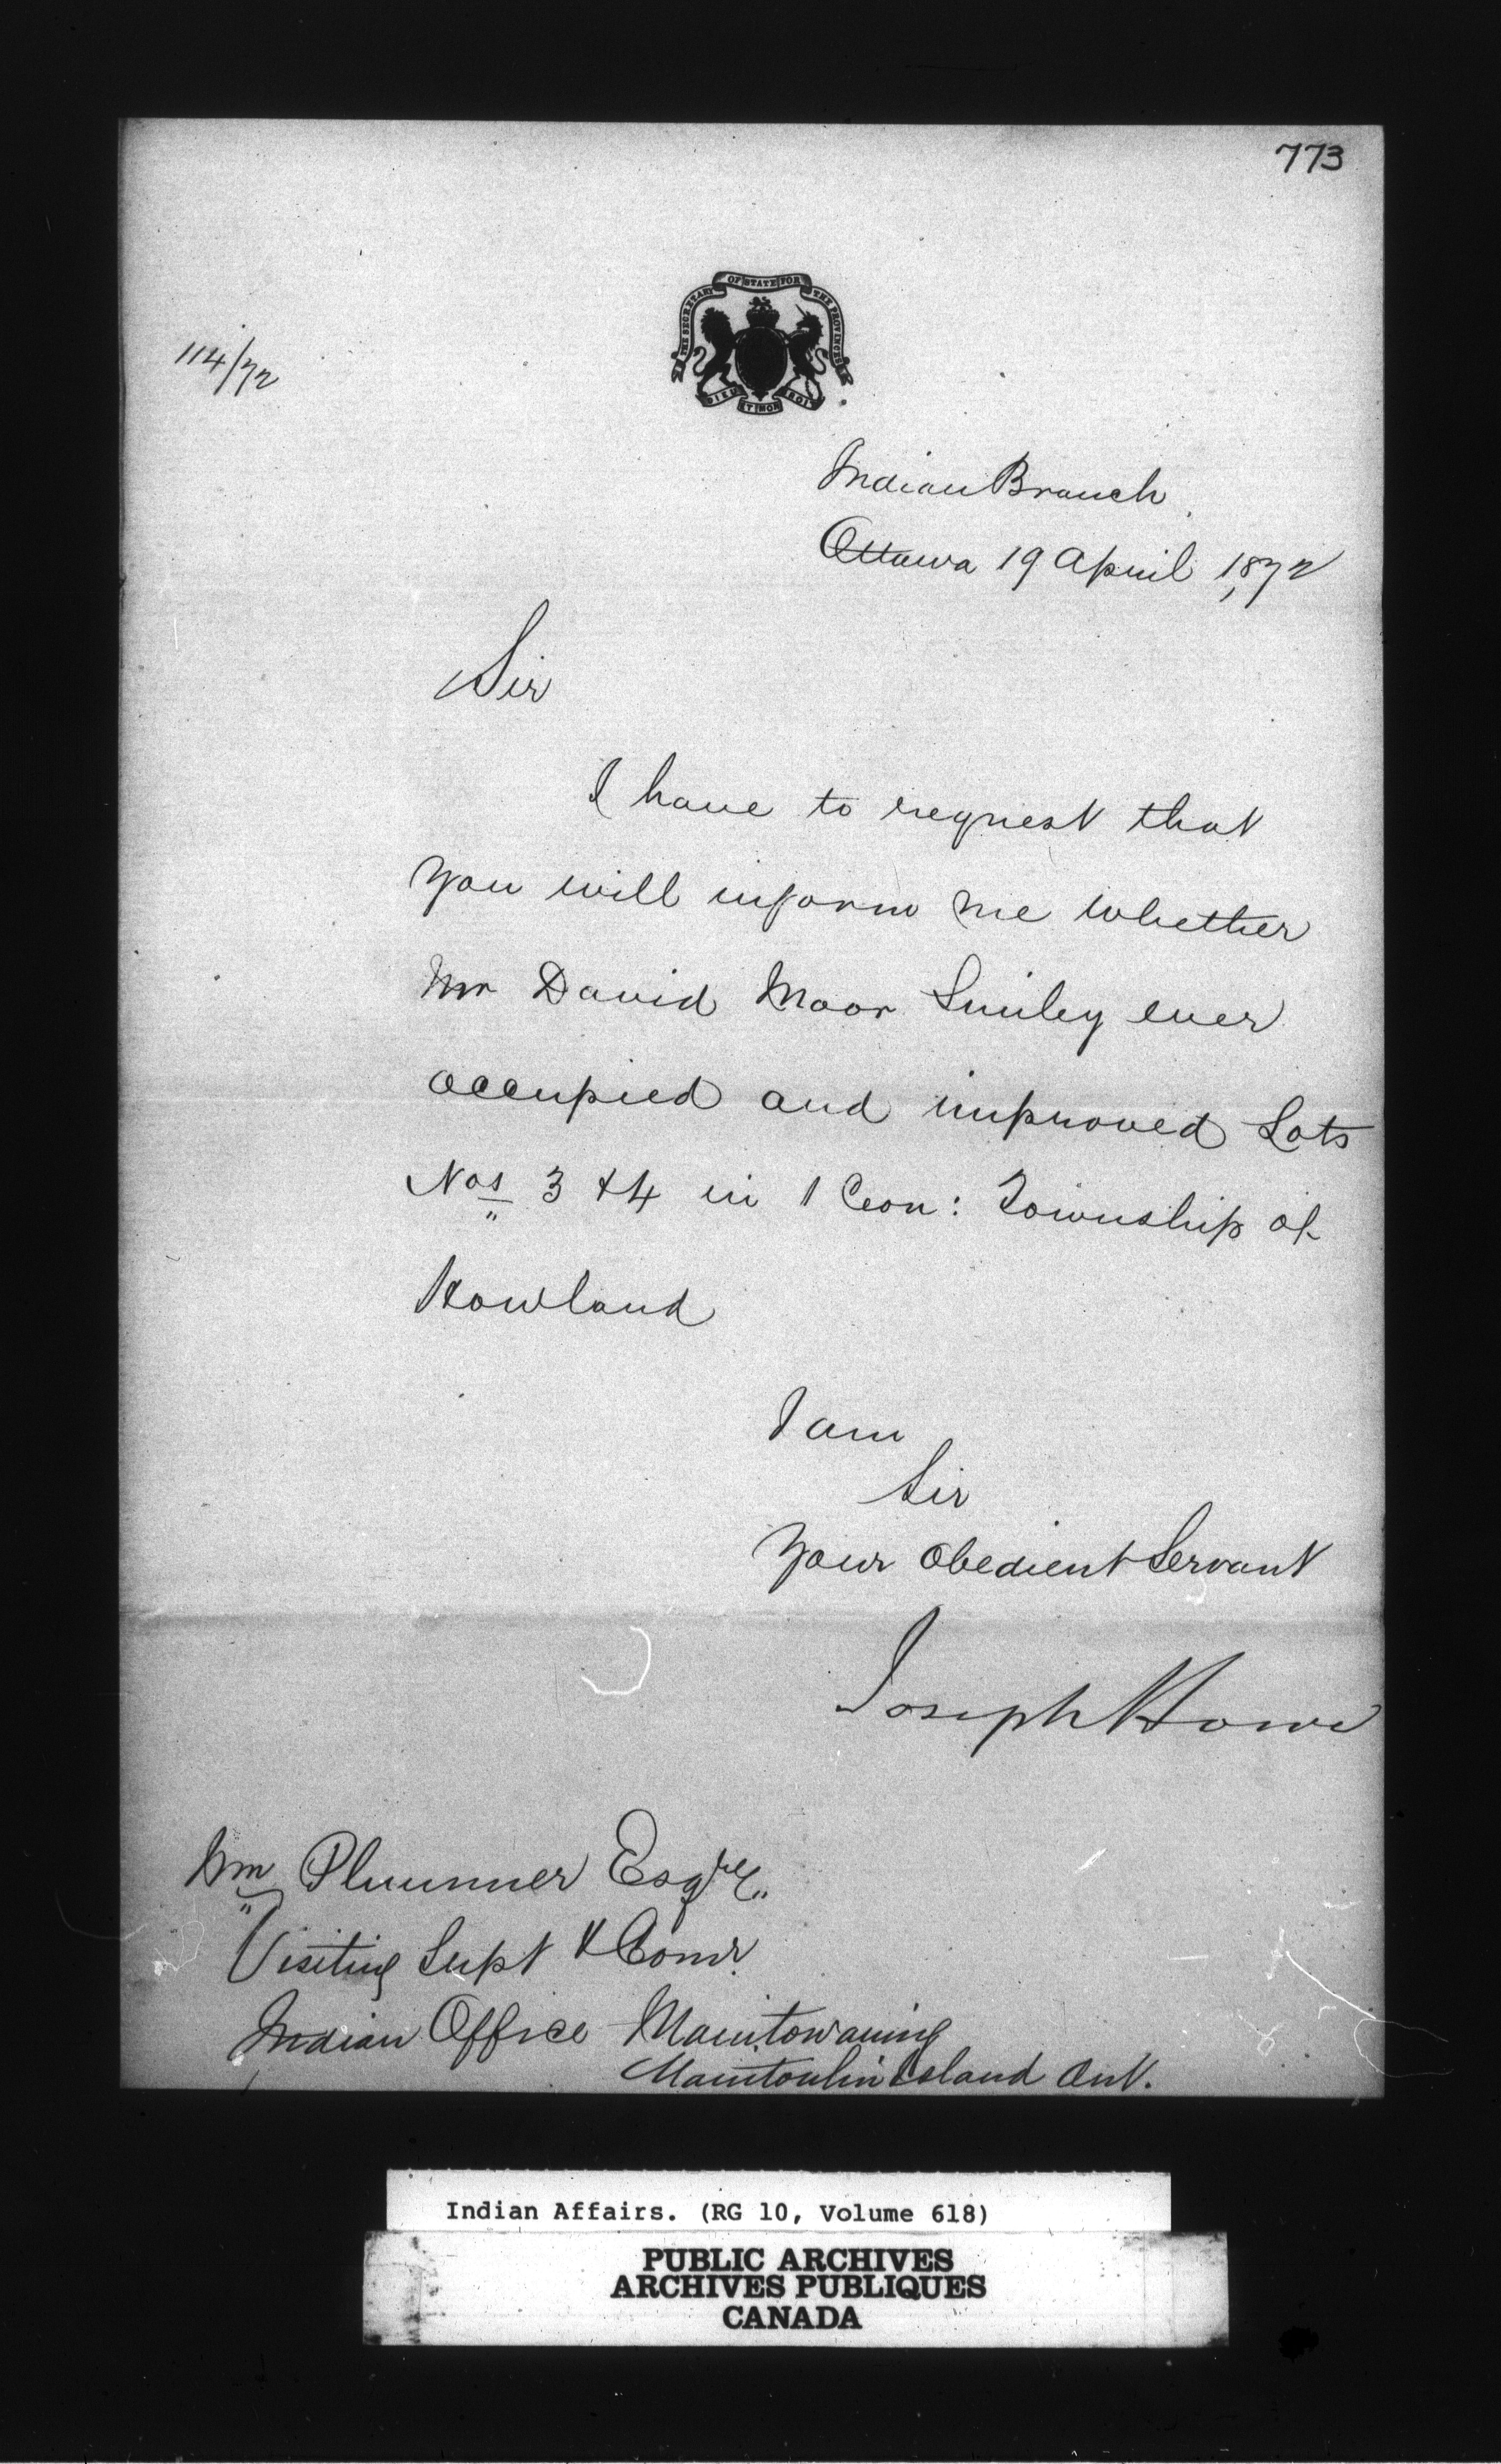 773
THE SECRETARY OF STATE FOR THE PROVINCES
DIEU ET MON DROIT
114/72
Indian Branch
Ottawa 19 April 1872
Sir
I have to request that
you will inform me whether
Mr David Moor Smiley ever
occupied and improved Lots
Nos 3 & 4 in 1 Con: Township of
Howland
I am
Sir
Your obedient Servant
Joseph Howe
Wm Plummer Esqre
Visiting Supt & Comr.
Indian Office Manitowaning
Manitoulin Island Ont.
Indian Affairs. (RG 10, Volume 618)
PUBLIC ARCHIVES
ARCHIVES PUBLIQUES
CANADA